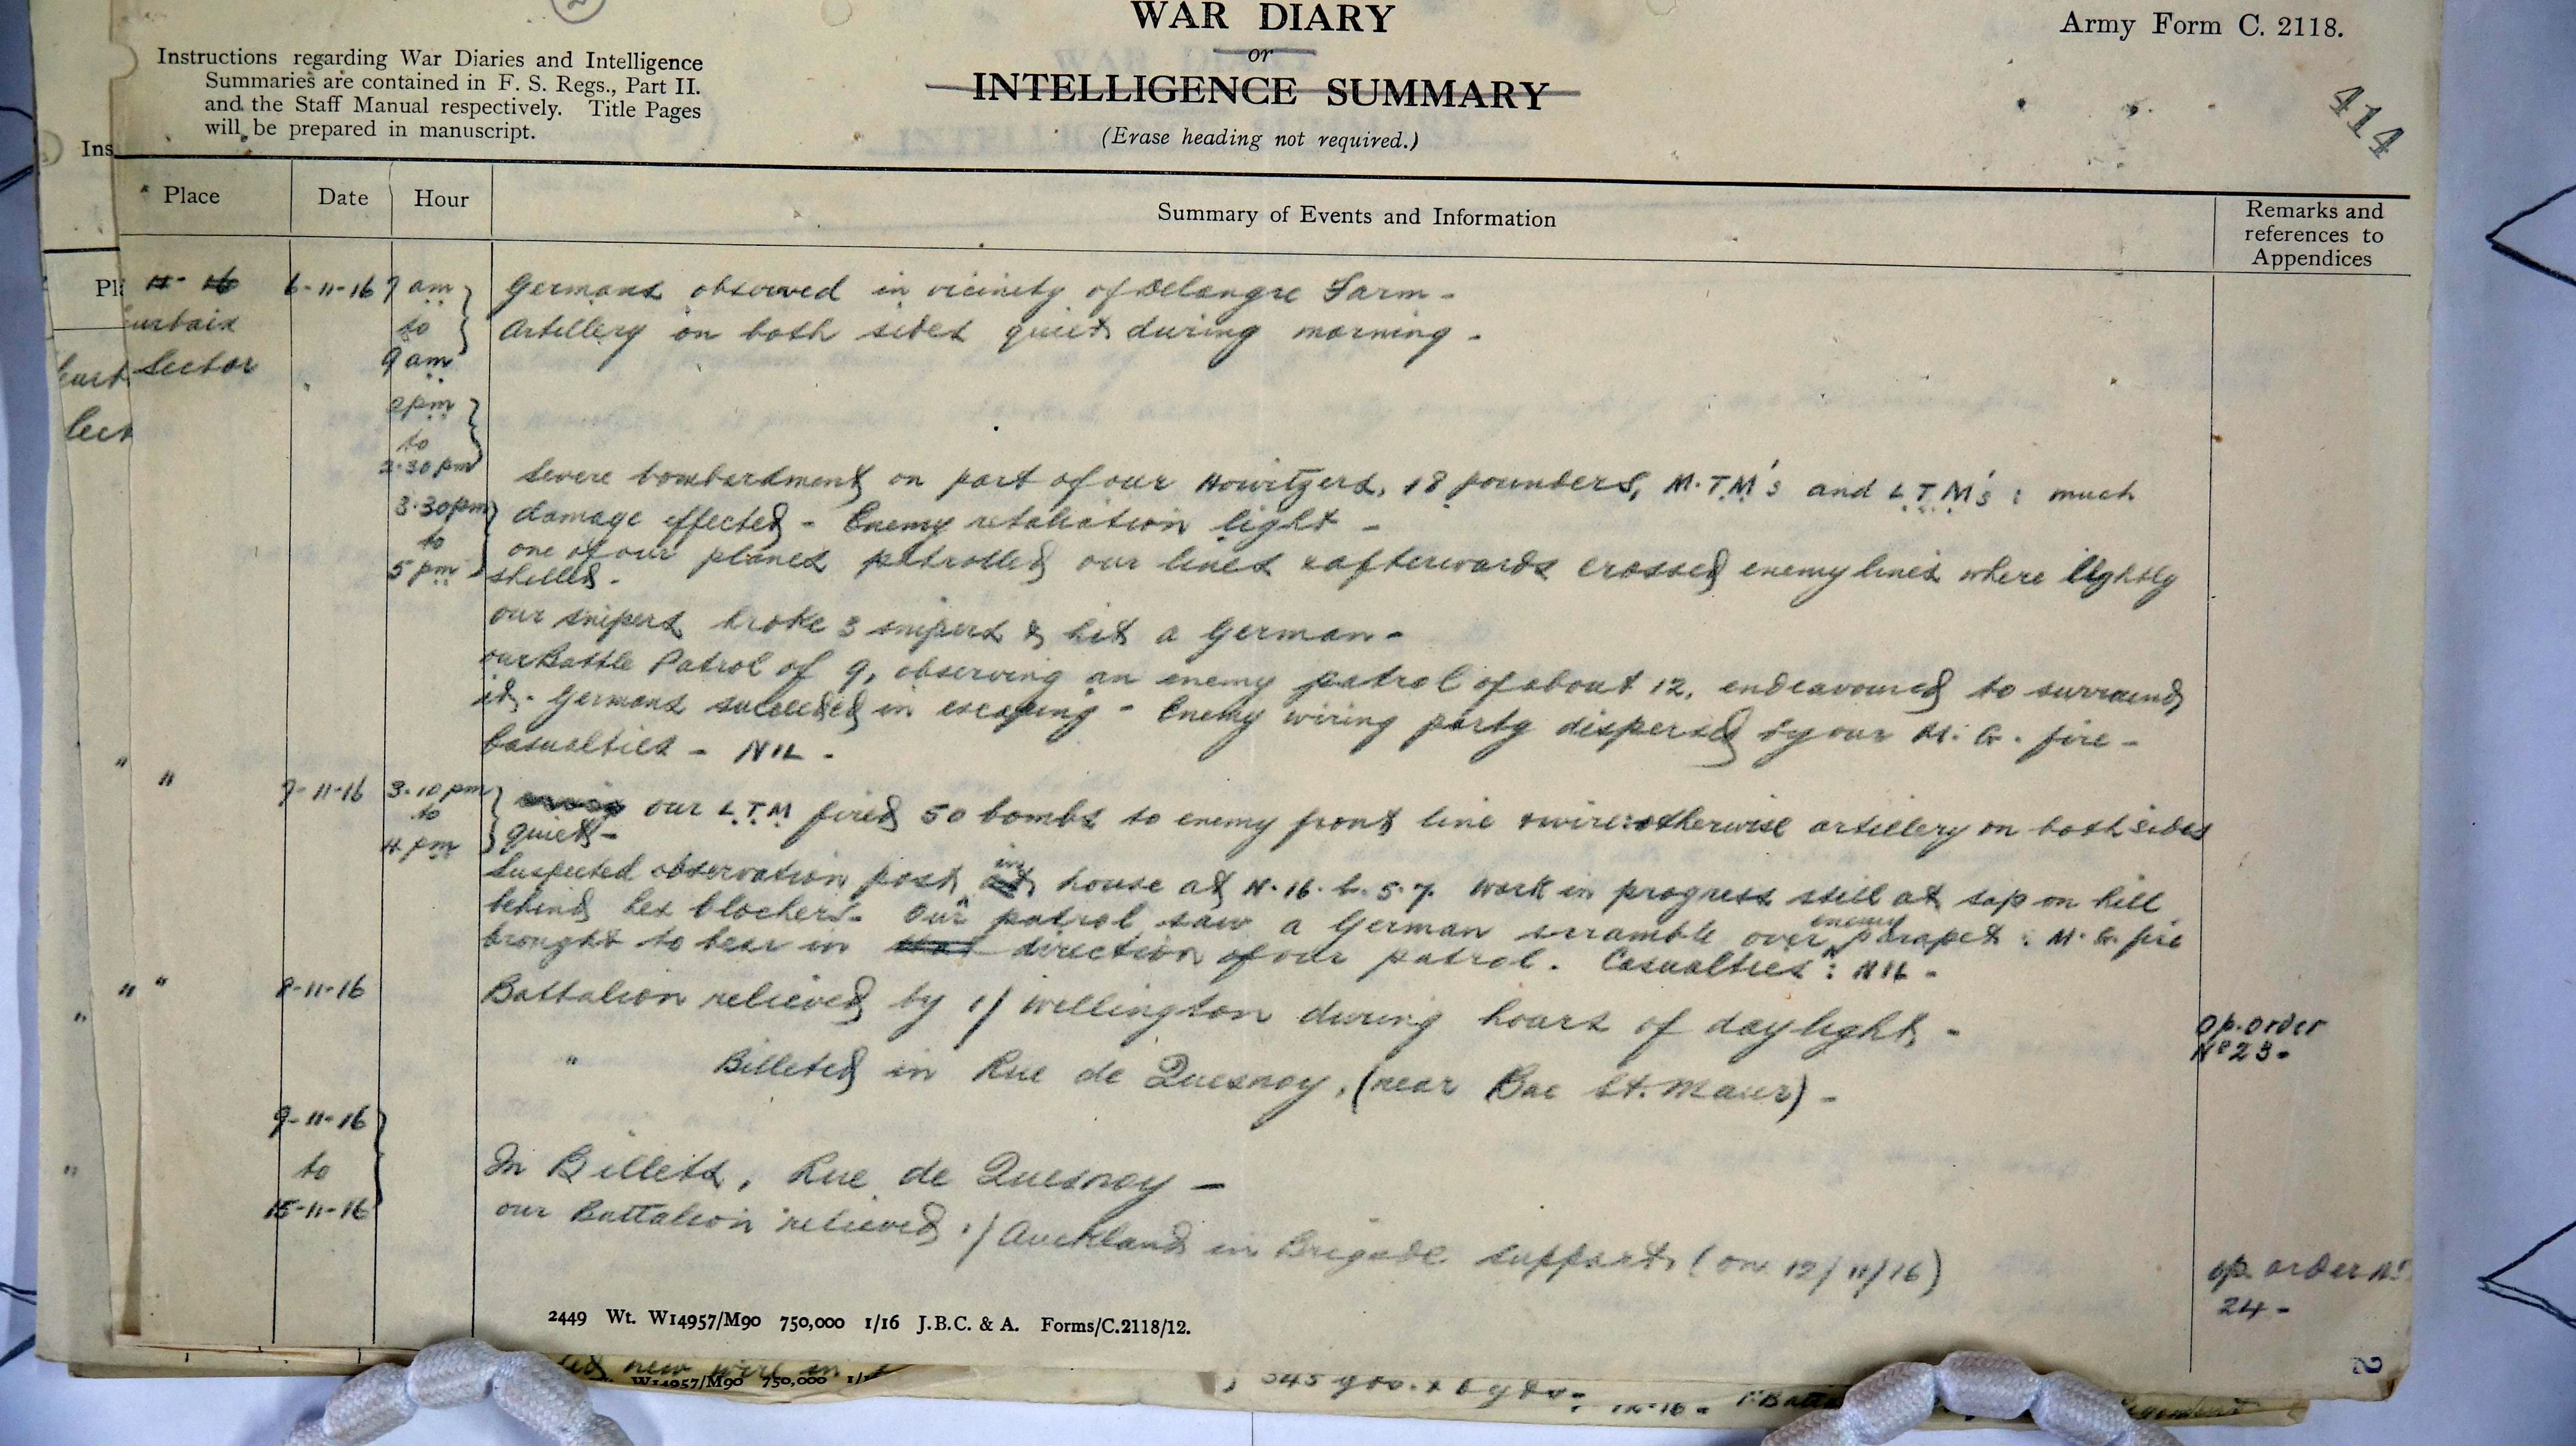 WAR DIARY
or
INTELLIGENCE SUMMARY
(Erase heading not required.)
Army Form C. 2118.
Instructions regarding War Diaries and Intelligence
Summaries are contained in F. S. Regs., Part II.
and the Staff Manual respectively. Title Pages
will be prepared in manuscript.
414
Ins
Place
Date
Hour
Summary of Events and Information
Remarks and
references to
Appendices
Pl
urbaix
Sector
6-11-16
7 am
to
9 am
Germans observed in vicinity of Delangre Farm -
Artillery on both sides quiet during morning -
2pm
to
2.30 pm
Severe bombardment on part of our Howitzers, 18 pounders, M.T.M's and L.T.M's : much
damage effected - Enemy retaliation light -
3.30pm
to
5 pm
one of our planes patrolled our lines & afterwards crossed enemy lines where lightly
shelled -
our snipers broke 3 snipers & hit a German -
our Battle Patrol of 9, observing an enemy patrol of about 12, endeavoured to surround
it - Germans succeeded in escaping - Enemy wiring party dispersed by our M. G. fire -
Casualties - NIL -
" "
7-11-16
3.10 pm
to
4 pm
our L.T.M fired 50 bombs to enemy front line & wire: otherwise artillery on both sides
quiet -
Suspected observation post in house at N.16.b.5.7. Work in progress still at sap on hill
behind Les Clochers. Our patrol saw a German scramble over enemy parapet : M.G. fire
brought to bear in direction of our patrol. Casualties : NIL -
" "
8-11-16
Battalion relieved by 1/ Wellington during hours of daylight -
Op. order
No 23 -
" Billeted in Rue de Quesnoy, (near Bac St. Maur) -
9-11-16
to
15-11-16
In Billets, Rue de Quesnoy -
our Battalion relieved 1/ Auckland in Brigade support (on 12/11/16)
op. order No
24 -
2449 Wt. W14957/M90 750,000 1/16 J.B.C. & A. Forms/C.2118/12.
new wire in
W14957/M90 750,000 1/1
2